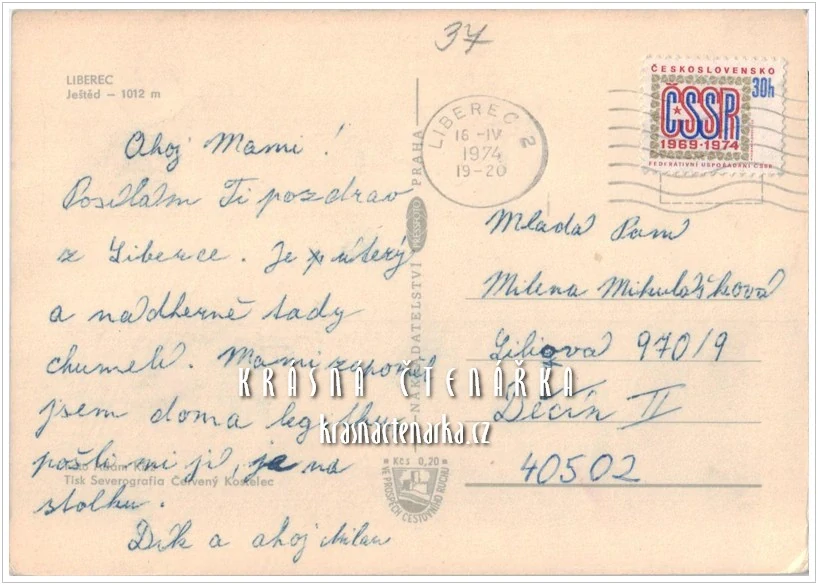 37
LIBEREC
Ještěd – 1012 m
Ahoj Mami!
Posílám Ti pozdrav
z Liberce. Je úterý
a nádherně tady
chumelí. Mami zapoměl
jsem doma legitku
pošli mi ji, je na
stolku.
Dík a ahoj Milan
Tisk Severografia Červený Kostelec
NAKLADATELSTVÍ PRESSFOTO PRAHA
Kčs 0,20
VE PROSPĚCH CESTOVNÍHO RUCHU
LIBEREC 2
16-IV
1974
19-20
ČESKOSLOVENSKO
30h
ČSSR
1969·1974
FEDERATIVNÍ USPOŘÁDÁNÍ ČSSR
Mladá Paní
Milena Mikulášková
Libiova 970/9
Děčín II
40502
KRÁSNÁ ČTENÁŘKA
krasnactenarka.cz